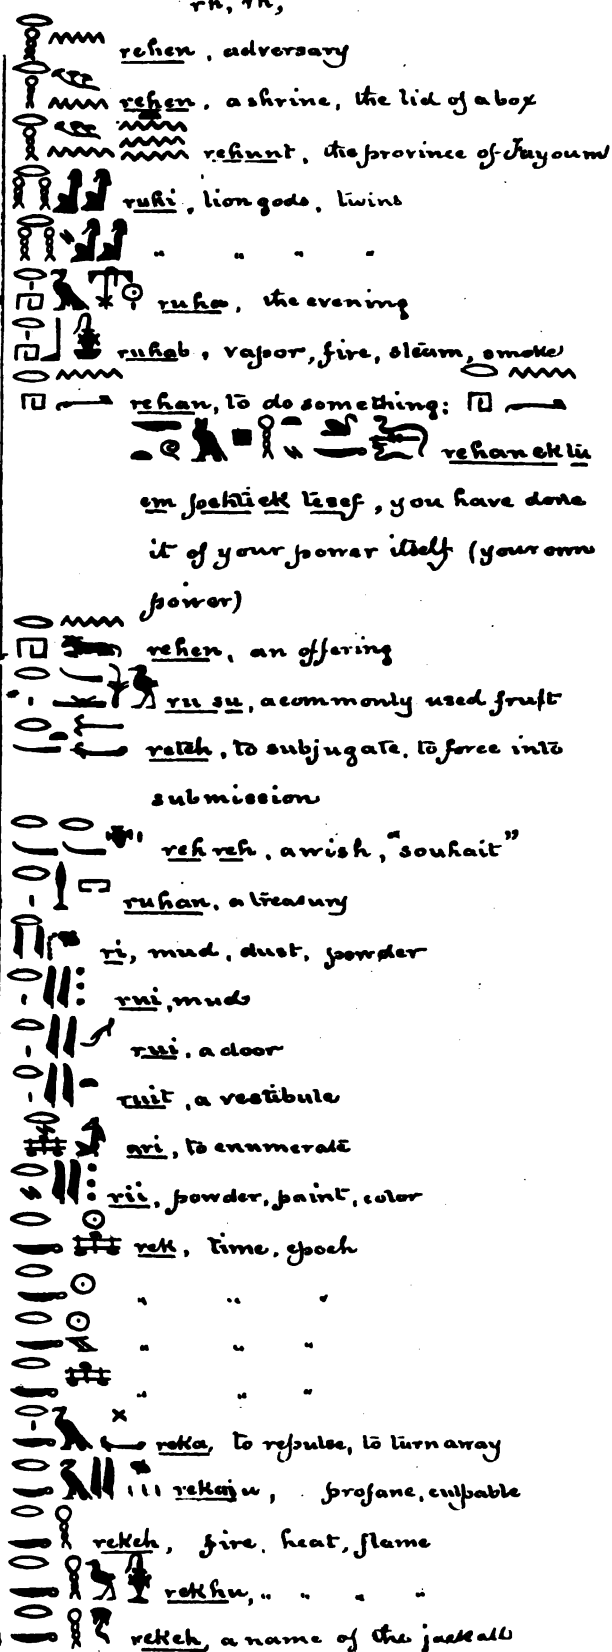 rh, rh,
rehen, adversary
rehen, a shrine, the lid of a box
rehunt, the province of Fayoum
ruhi, lion gods, twins
" " " "
ruha, the evening
ruhab, vapor, fire, steam, smoke
rehan, to do something:
rehan ek tu
em pehtiek tesef, you have done
it of your power itself (your own
power)
rehen, an offering
ru su, a commonly used fruit
reteh, to subjugate, to force into
submission
reh reh, a wish, "souhait"
ruhan, a treasury
ri, mud, dust, powder
rui, mud
rui, a door
ruit, a vestibule
ari, to enumerate
rii, powder, paint, color
rek, time, epoch
" " "
" " "
" " "
reka, to repulse, to turn away
rekaju, profane, culpable
rekeh, fire, heat, flame
rekhu, " " " "
rekeh, a name of the jackall